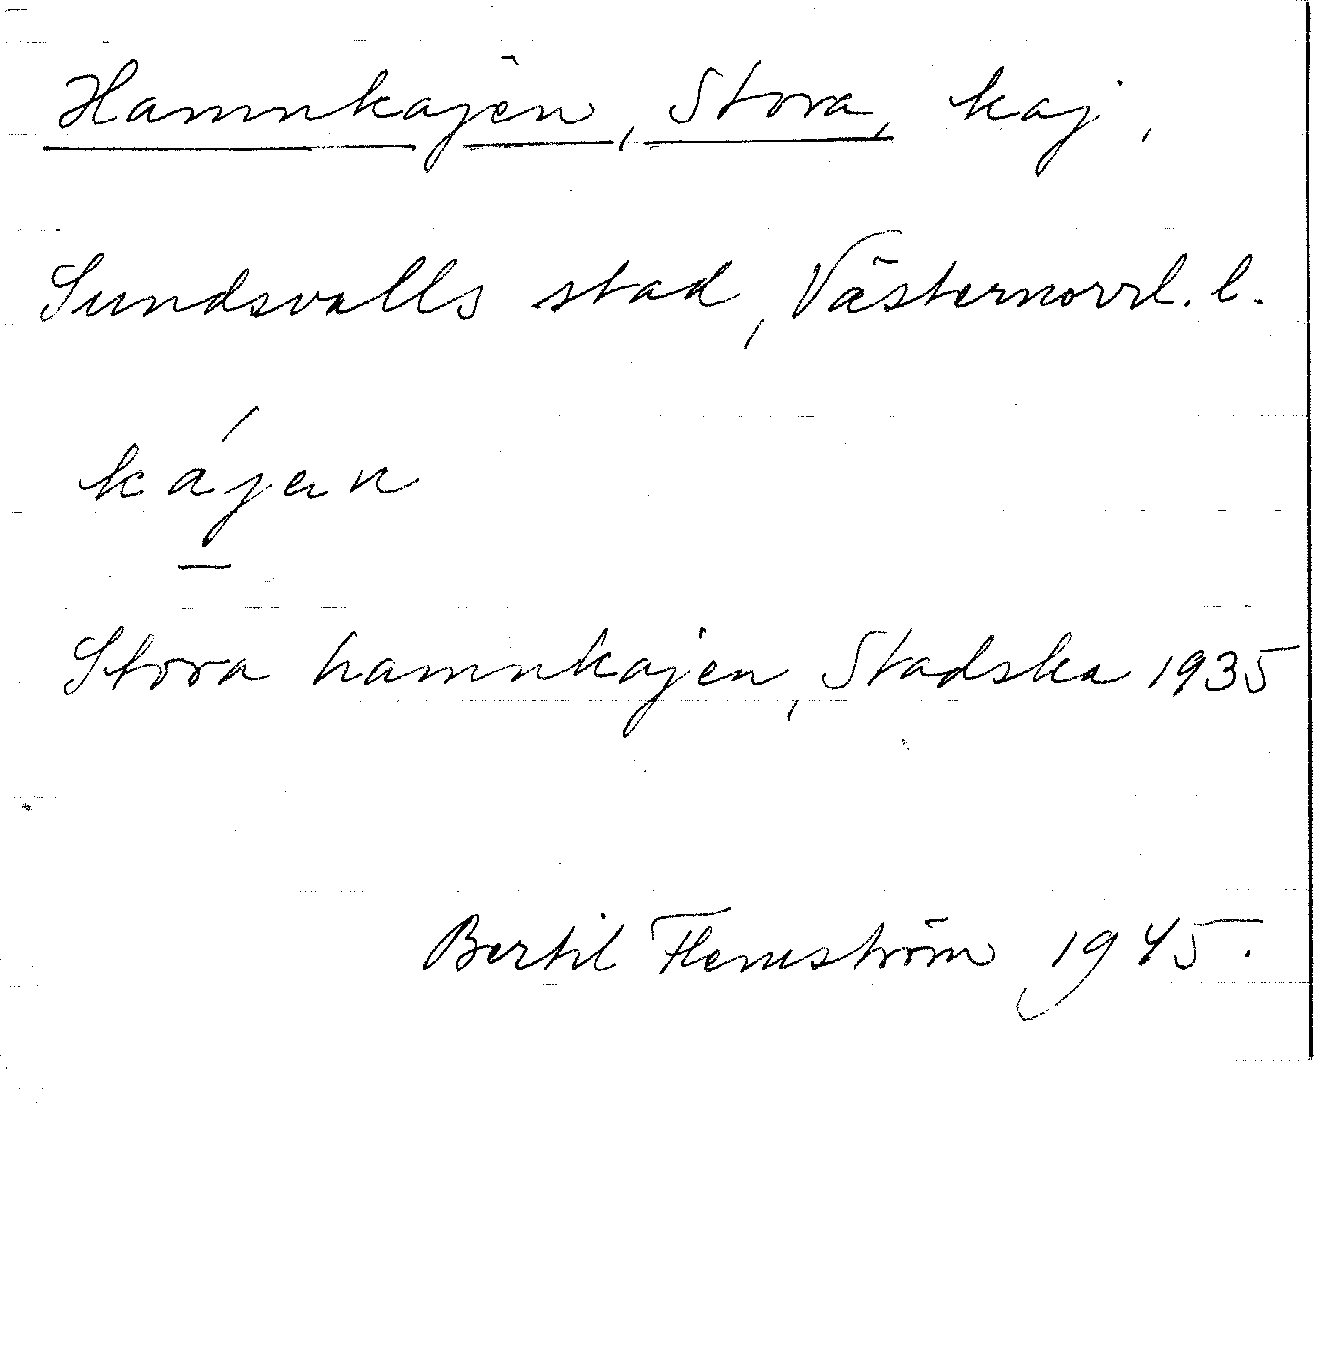 Hamnkajen, Stora, kaj,
Sundsvalls stad, Västernorrl. l.
kájan
Stora hamnkajen, Stadska 1935
Bertil Flemström 1945.